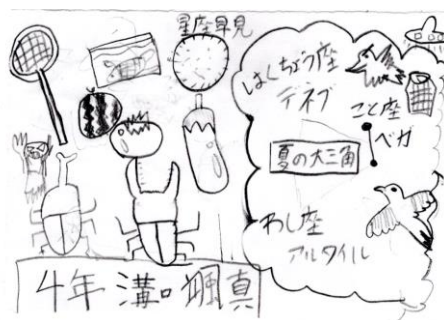 星座早見
はくちょう座
デネブ
こと座
ベガ
夏の大三角
わし座
アルタイル
4年 溝口 颯真